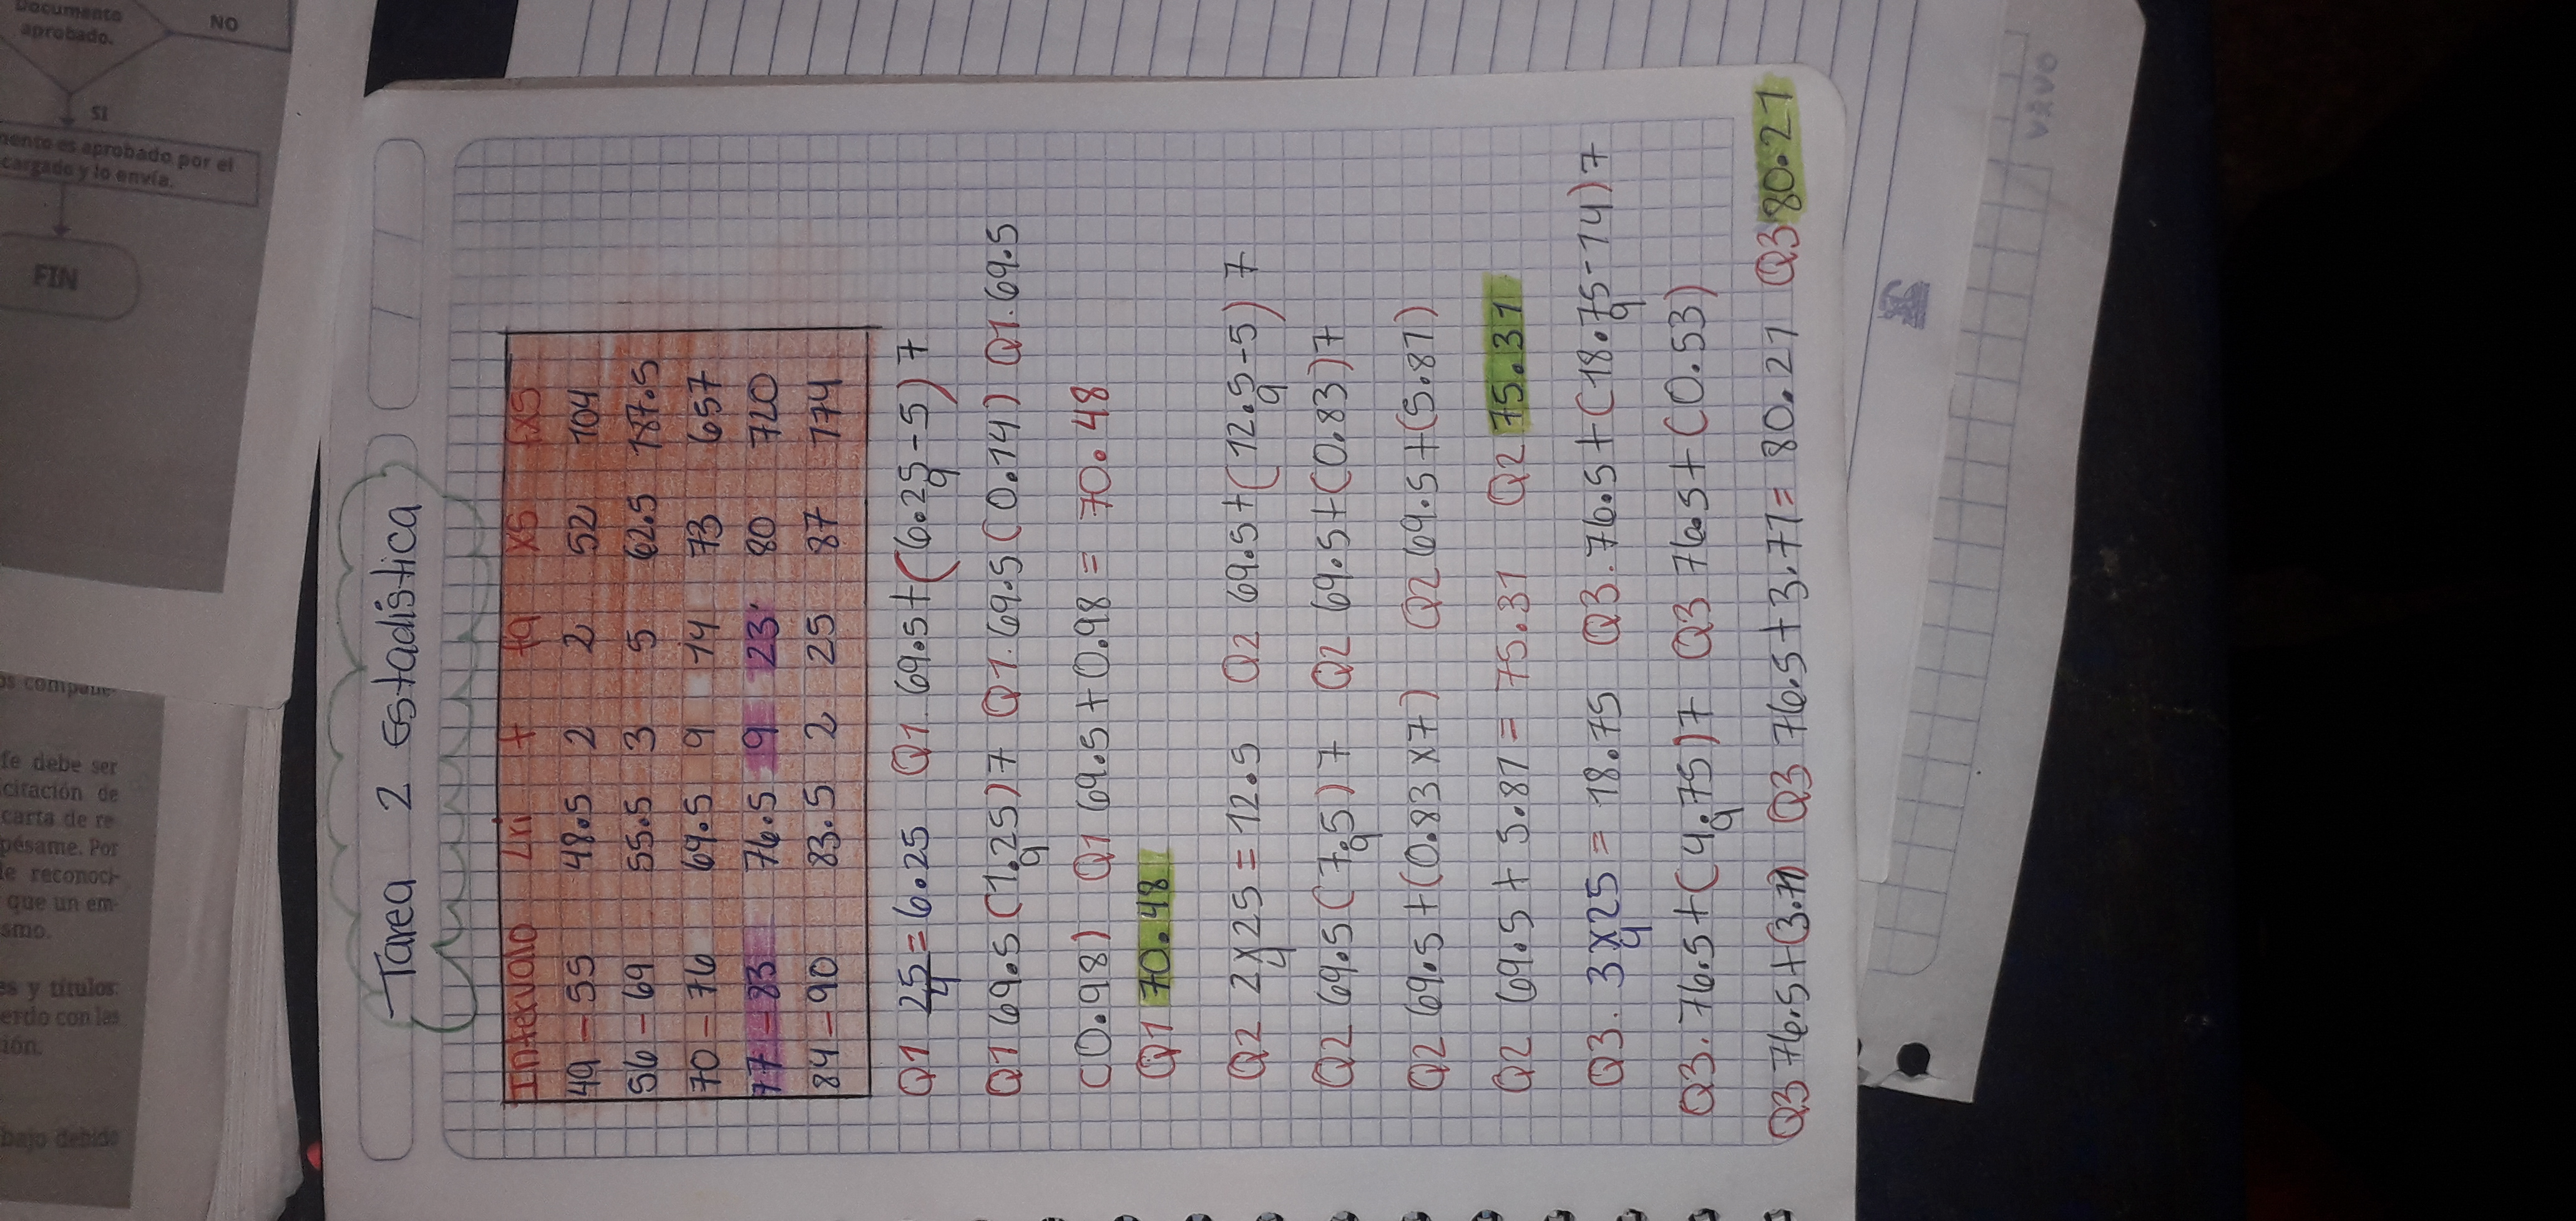 Documento
aprobado.
NO
SI
mento es aprobado por el
cargado y lo envía.
FIN
os compañe-
fe debe ser
citación de
carta de re-
pésame. Por
le reconoci-
que un em-
smo.
es y títulos:
erdo con las
ión.
bajo debido
Tarea 2 estadística
Intervalo Lri f fa xs fxs
49-55 48.5 2 2 52 104
56-69 55.5 3 5 62.5 187.5
70-76 69.5 9 14 73 657
77-83 76.5 9 23. 80 720
84-90 83.5 2 25 87 174
Q1 25/4 = 6.25 Q1. 69.5+(6.25-5/9)7
Q1 69.5(1.25/9)7 Q1. 69.5(0.14) Q1. 69.5
(0.98) Q1 69.5+0.98 = 70.48
Q1 70.48
Q2 2x25/4 = 12.5 Q2 69.5+(12.5-5/9)7
Q2 69.5(7.5/9)7 Q2 69.5+(0.83)7
Q2 69.5+(0.83x7) Q2 69.5+(5.81)
Q2 69.5+5.81 = 75.31 Q2 75.31
Q3. 3x25/4 = 18.75 Q3. 76.5+(18.75-14/9)7
Q3. 76.5+(4.75/9)7 Q3 76.5+(0.53)
Q3 76.5+(3.71) Q3 76.5+3.71= 80.21 Q3 80.21